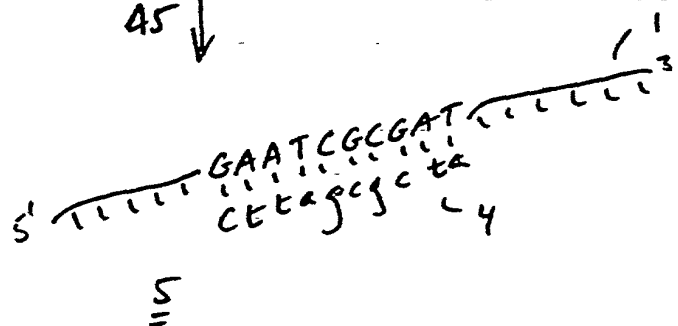 45
1
3
GAATCGCGAT
5'
cttagcgcta
4
5